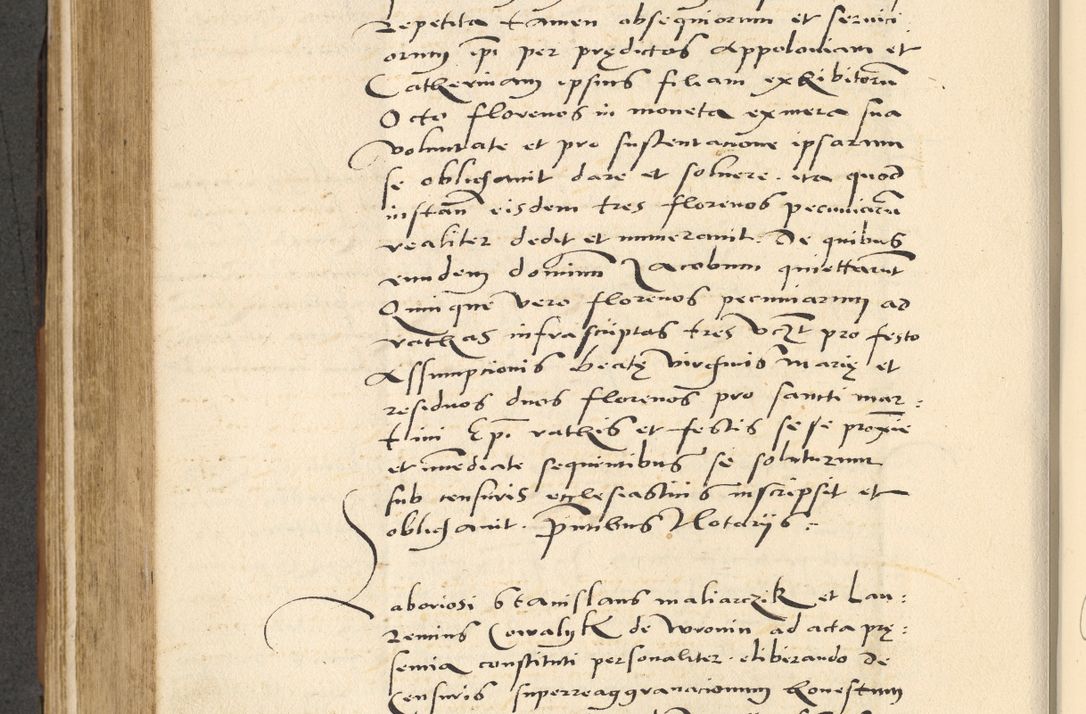 Repetita tamen obsequiorum et servici
orum ipi per prędictas Appoloniam et
Catherinam ipsius filiam exhibitorũ
Octo florenos in moneta ex mera sua
voluntate et pro sustentacione ipsarum
se obligavit dare et solvere. ita quod
in stanti eisdem tres florenos pecuniarũ
realiter dedit et numeravit. De quibus
eundem dominum Jacobum quiettarunt
Quinque vero florenos pecuniarum ad
rathas infrascriptas tres vczt pro festo
Assumpcionis beatę virginis Marię et
residuos duos florenos pro sancti Mar:
tini Epi rathis et festis se se proxie
et immediate sequentibus se soluturum
sub censuris ecclesiasticis inscripsit et
obligavit. Pntibus Notarijs:
Laboriosi Stanislaus maliarczik et Lau:
Rencius Cowalyk de wronin ad acta prę:
sencia constituti personaliter. eliberando de
Censuris superreaggravacionum honestum